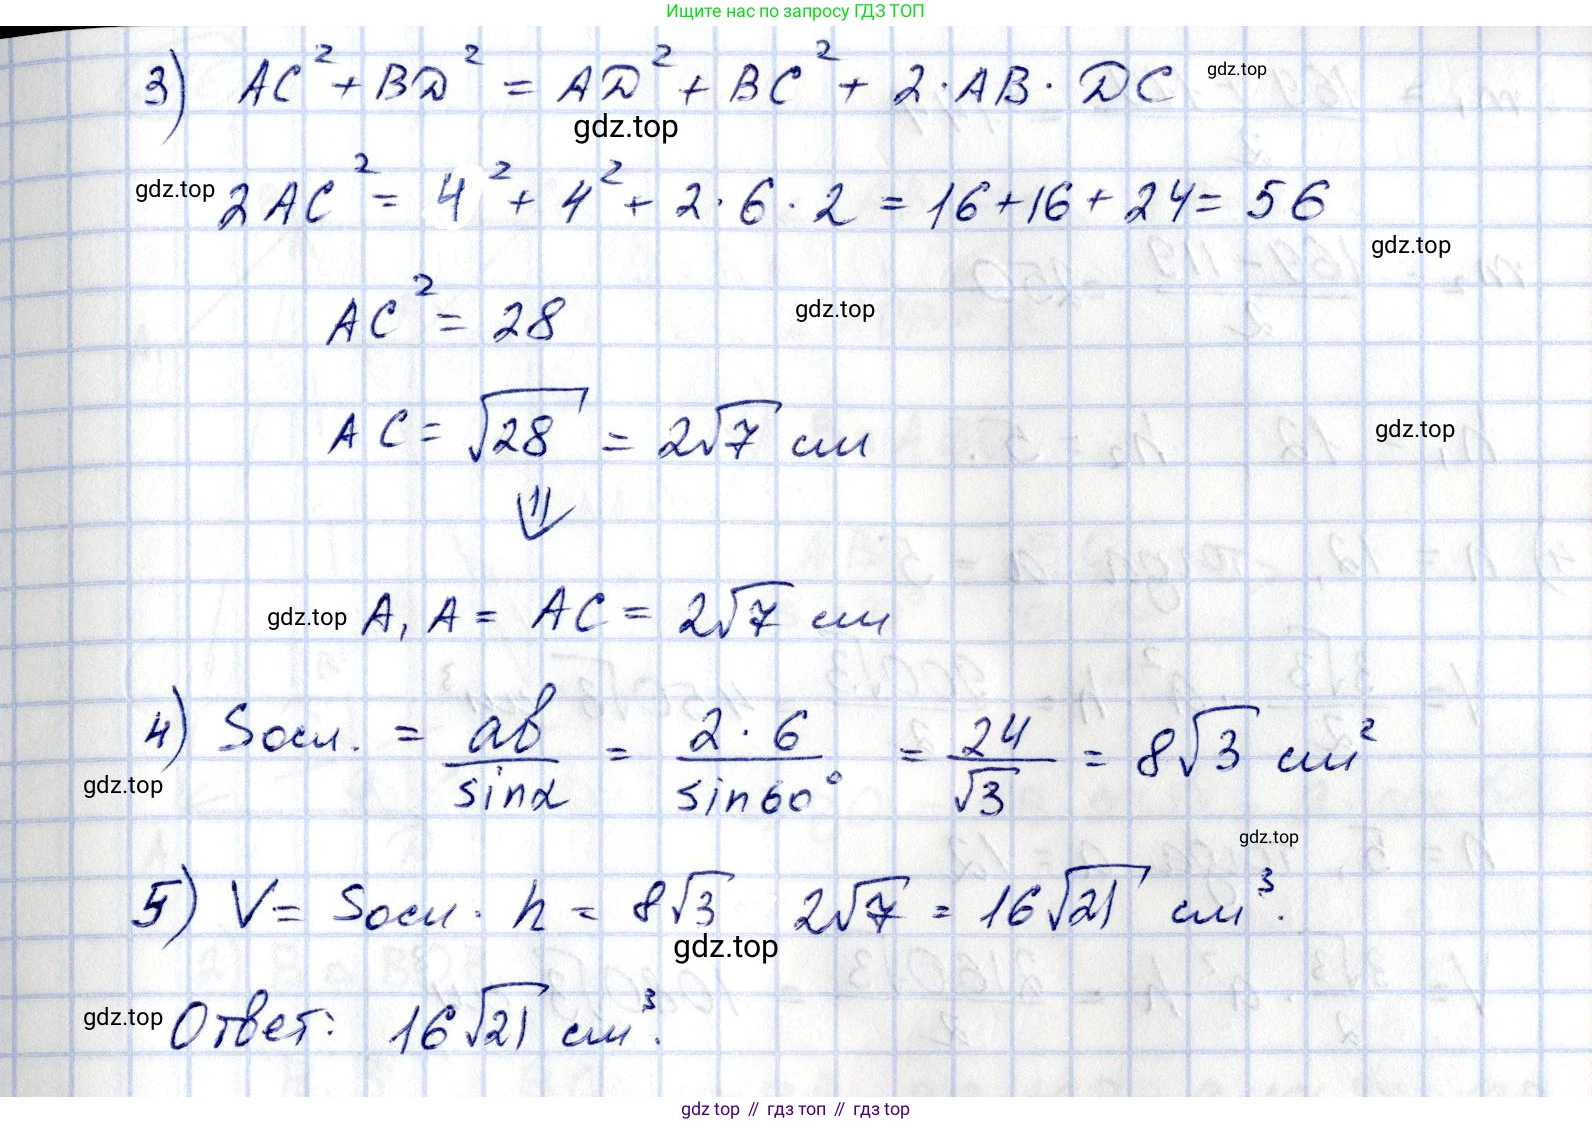 Ищите нас по запросу ГДЗ ТОП
3) AC² + BD² = AD² + BC² + 2·AB·DC
gdz.top
gdz.top
gdz.top 2AC² = 4² + 4² + 2·6·2 = 16+16+24 = 56
gdz.top
AC² = 28
gdz.top
AC = √28 = 2√7 см
gdz.top
⇓
gdz.top A₁A = AC = 2√7 см
4) Sосн. = ab/sinα = 2·6/sin60° = 24/√3 = 8√3 см²
gdz.top
gdz.top
5) V = Sосн · h = 8√3 2√7 = 16√21 см³.
gdz.top
gdz.top Ответ: 16√21 см³.
gdz.top // гдз топ // gdz.top